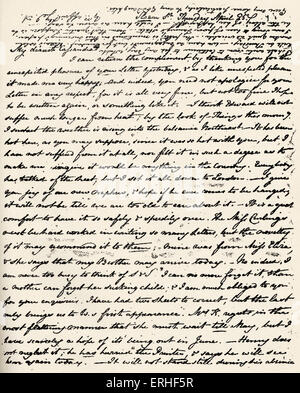 Sloane St Thursday April 25
My dearest Cassandra
I can return the compliment by thanking you for the
unexpected pleasure of your letter yesterday, & as I like unexpected pleasure,
it made me very happy; and indeed, you need not apologise for your
Letter in any respect, for it is all very fine, but not too fine I hope
to be written again, or something like it. I think Edward will not
suffer much longer from heat; by the look of Things this morng
I suspect the weather is rising into the balsamic Northeast. It has been
hot here, as you may suppose, since it was so hot with you, but I
have not suffered from it at all, nor felt it in such a degree as to
make me imagine it would be anything in the country. Everybody
has talked of the heat, but I set it all down to London. I give
you joy of our new nephew, & hope if he ever comes to be hanged,
it will not be till we are too old to care about it. It is a great
comfort to have it so safely & speedily over. The Miss Curlings
must be hard worked in writing so many letters, but the novelty
of it may recommend it to them; mine was from Miss Eliza,
& she says that my Brother may arrive today. No indeed, I
am never too busy to think of S & S. I can no more forget it, than
a mother can forget her sucking child; & I am much obliged to you
for your enquiries. I have had two sheets to correct, but the last
only brings us to W.s first appearance. Mrs K. regrets in the
most flattering manner that she must wait till May, but I
have scarcely a hope of its being out in June. Henry does
not neglect it; he has hurried the Printer, & says he will see
him again today. It will not stand still during his absence
alamy
Image ID: ERHF5R
www.alamy.com